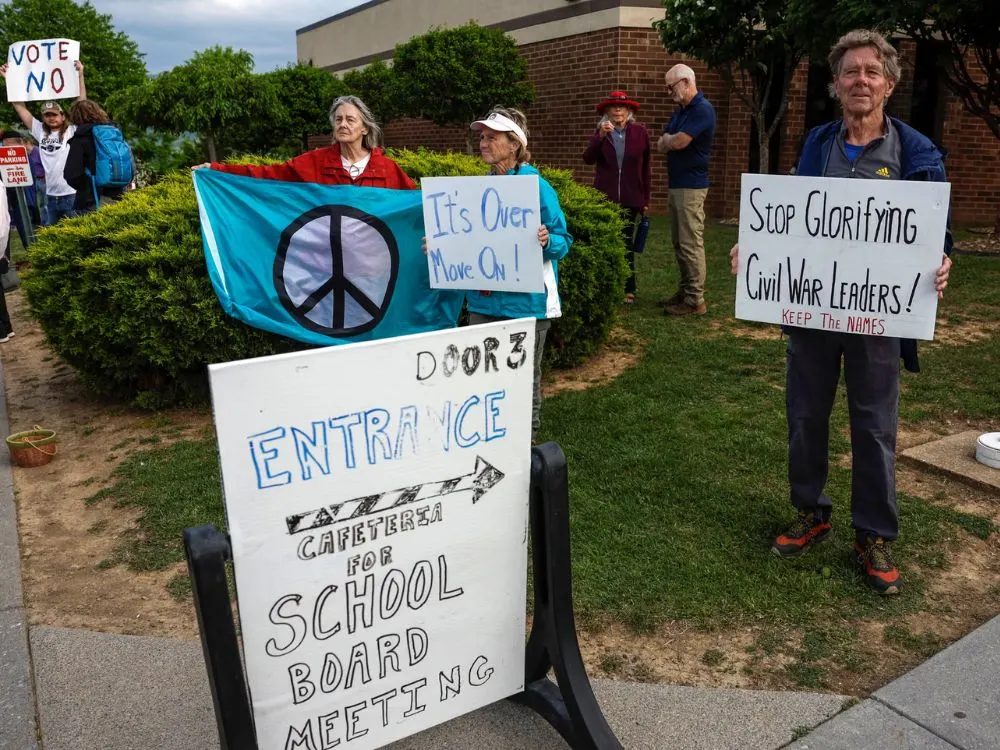 VOTE
NO
NO
PARKING
FIRE
LANE
It's Over
Move On!
Stop Glorifying
Civil War Leaders!
Keep The Names
DOOR 3
ENTRANCE
CAFETERIA
FOR
SCHOOL
BOARD
MEETING